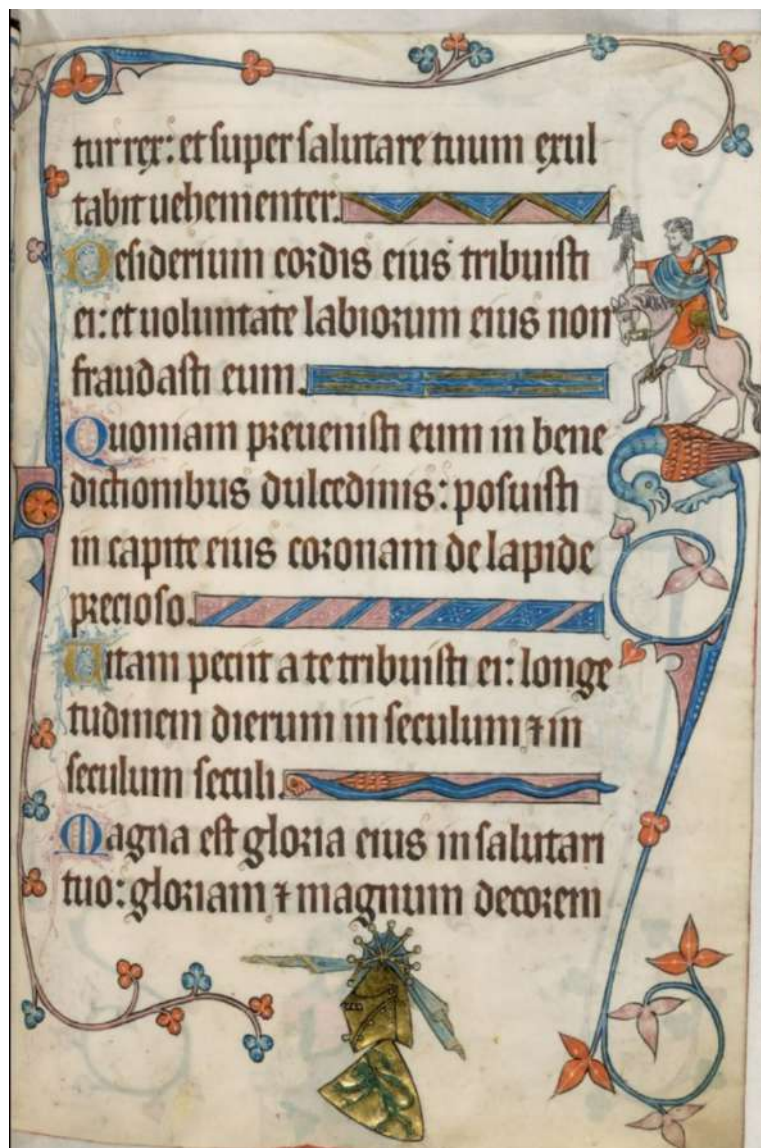 tur rex: et super salutare tuum exul
tabit uehementer.
Desiderium cordis eius tribuisti
ei: et uoluntate labiorum eius non
fraudasti eum.
Quoniam preuenisti eum in bene
dictionibus dulcedinis: posuisti
in capite eius coronam de lapide
precioso.
Uitam peciit a te tribuisti ei: longe
tudinem dierum in seculum ⁊ in
seculum seculi.
Magna est gloria eius in salutari
tuo: gloriam ⁊ magnum decorem